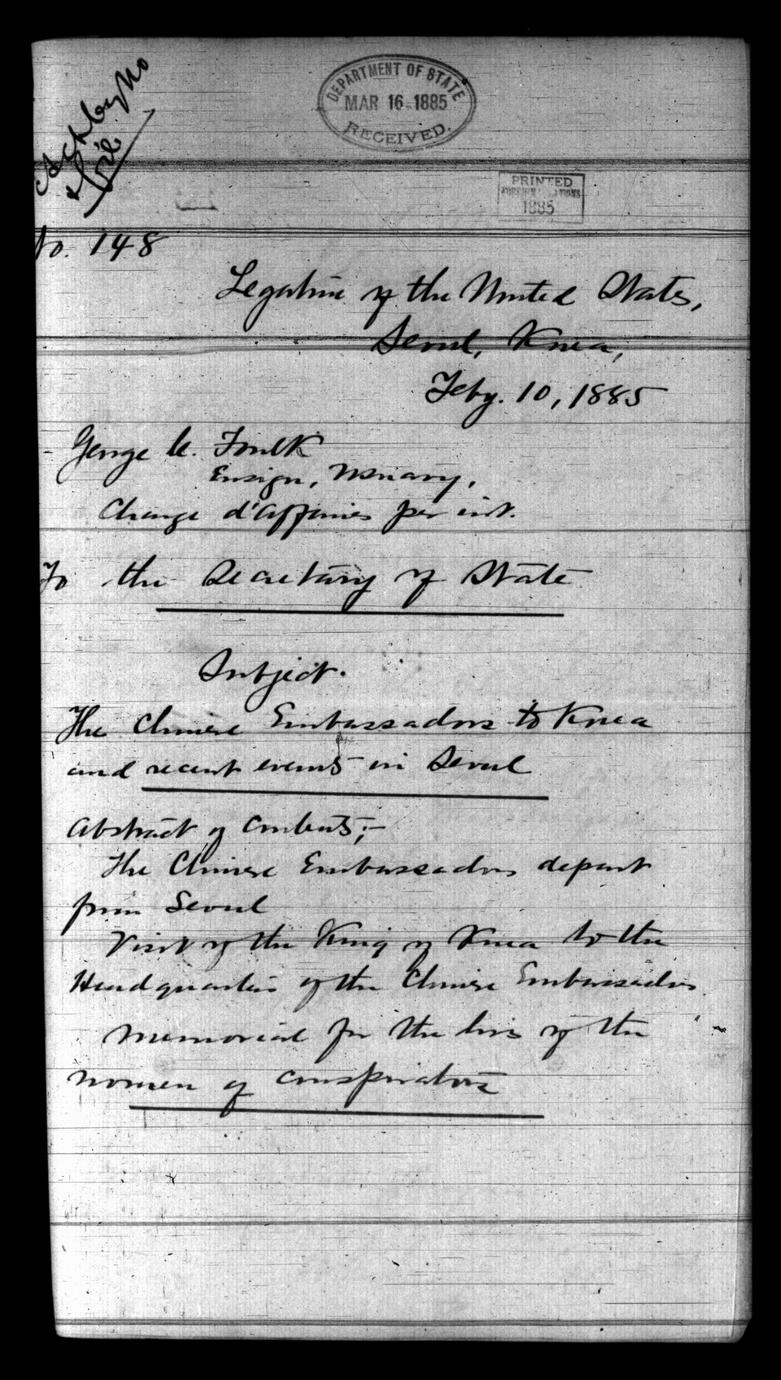 DEPARTMENT OF STATE
MAR 16 1885
RECEIVED.
PRINTED
1885
No. 148
Legation of the United States,
Seoul, Korea,
Feby. 10, 1885
George C. Foulk
Ensign, U.S. Navy,
Charge d'affaires per int.
To the Secretary of State
Subject.
The Chinese Embassadors to Korea
and recent events in Seoul
Abstract of contents;-
The Chinese Embassadors depart
from Seoul
Visit of the King of Korea to the
Headquarters of the Chinese Embassadors
Memorial for the lives of the
women of conspirators